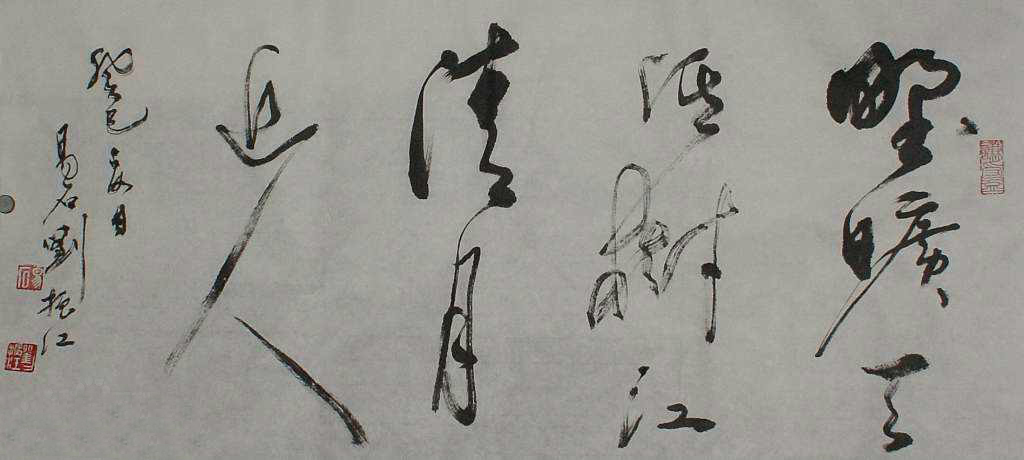 野曠天
低樹江
清月
近人
癸巳夏月
易石劉振江